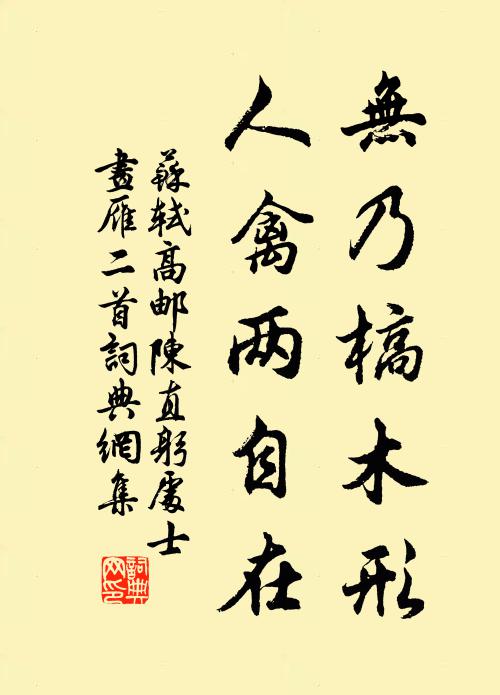 無乃槁木形
人禽两自在
蘇軾高邮陳直躬處士
畫雁二首詞典網集
詞典网印